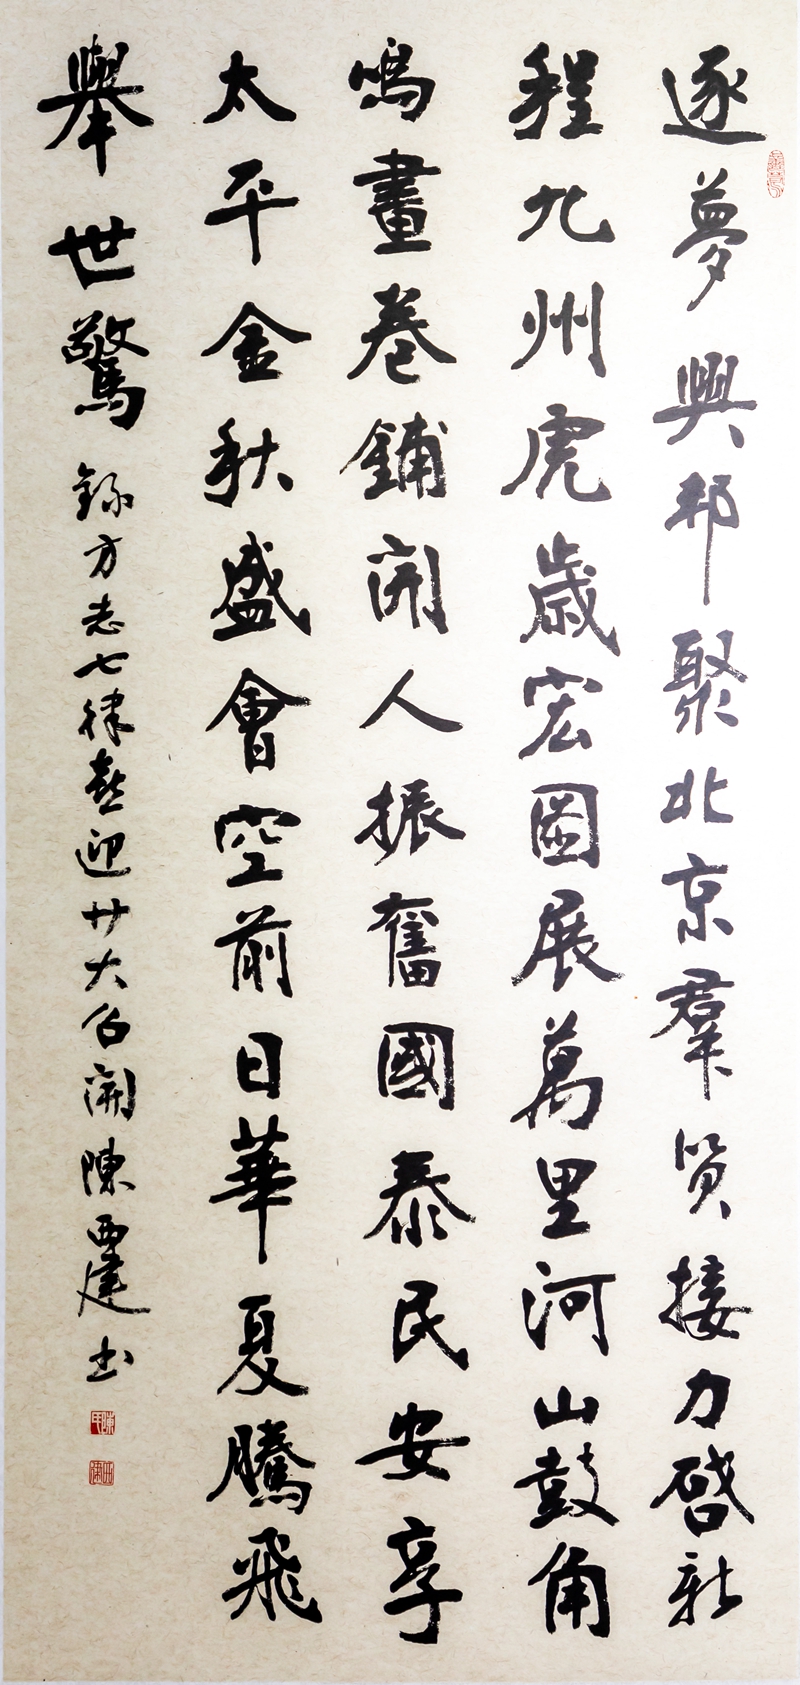 逐夢興邦聚北京羣賢接力啓新
程九州虎歲宏圖展萬里河山鼓角
鳴畫卷鋪開人振奮國泰民安享
太平金秋盛會空前日華夏騰飛
舉世驚
錄方志七律喜迎廿大召開陳西建书